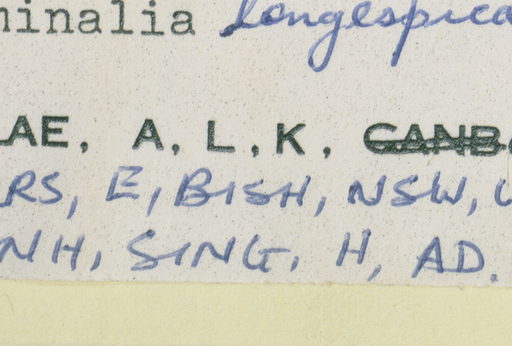 minalia longespica
LAE, A, L, K, CANB.
RS, E, BISH, NSW,
NH, SING, H, AD.